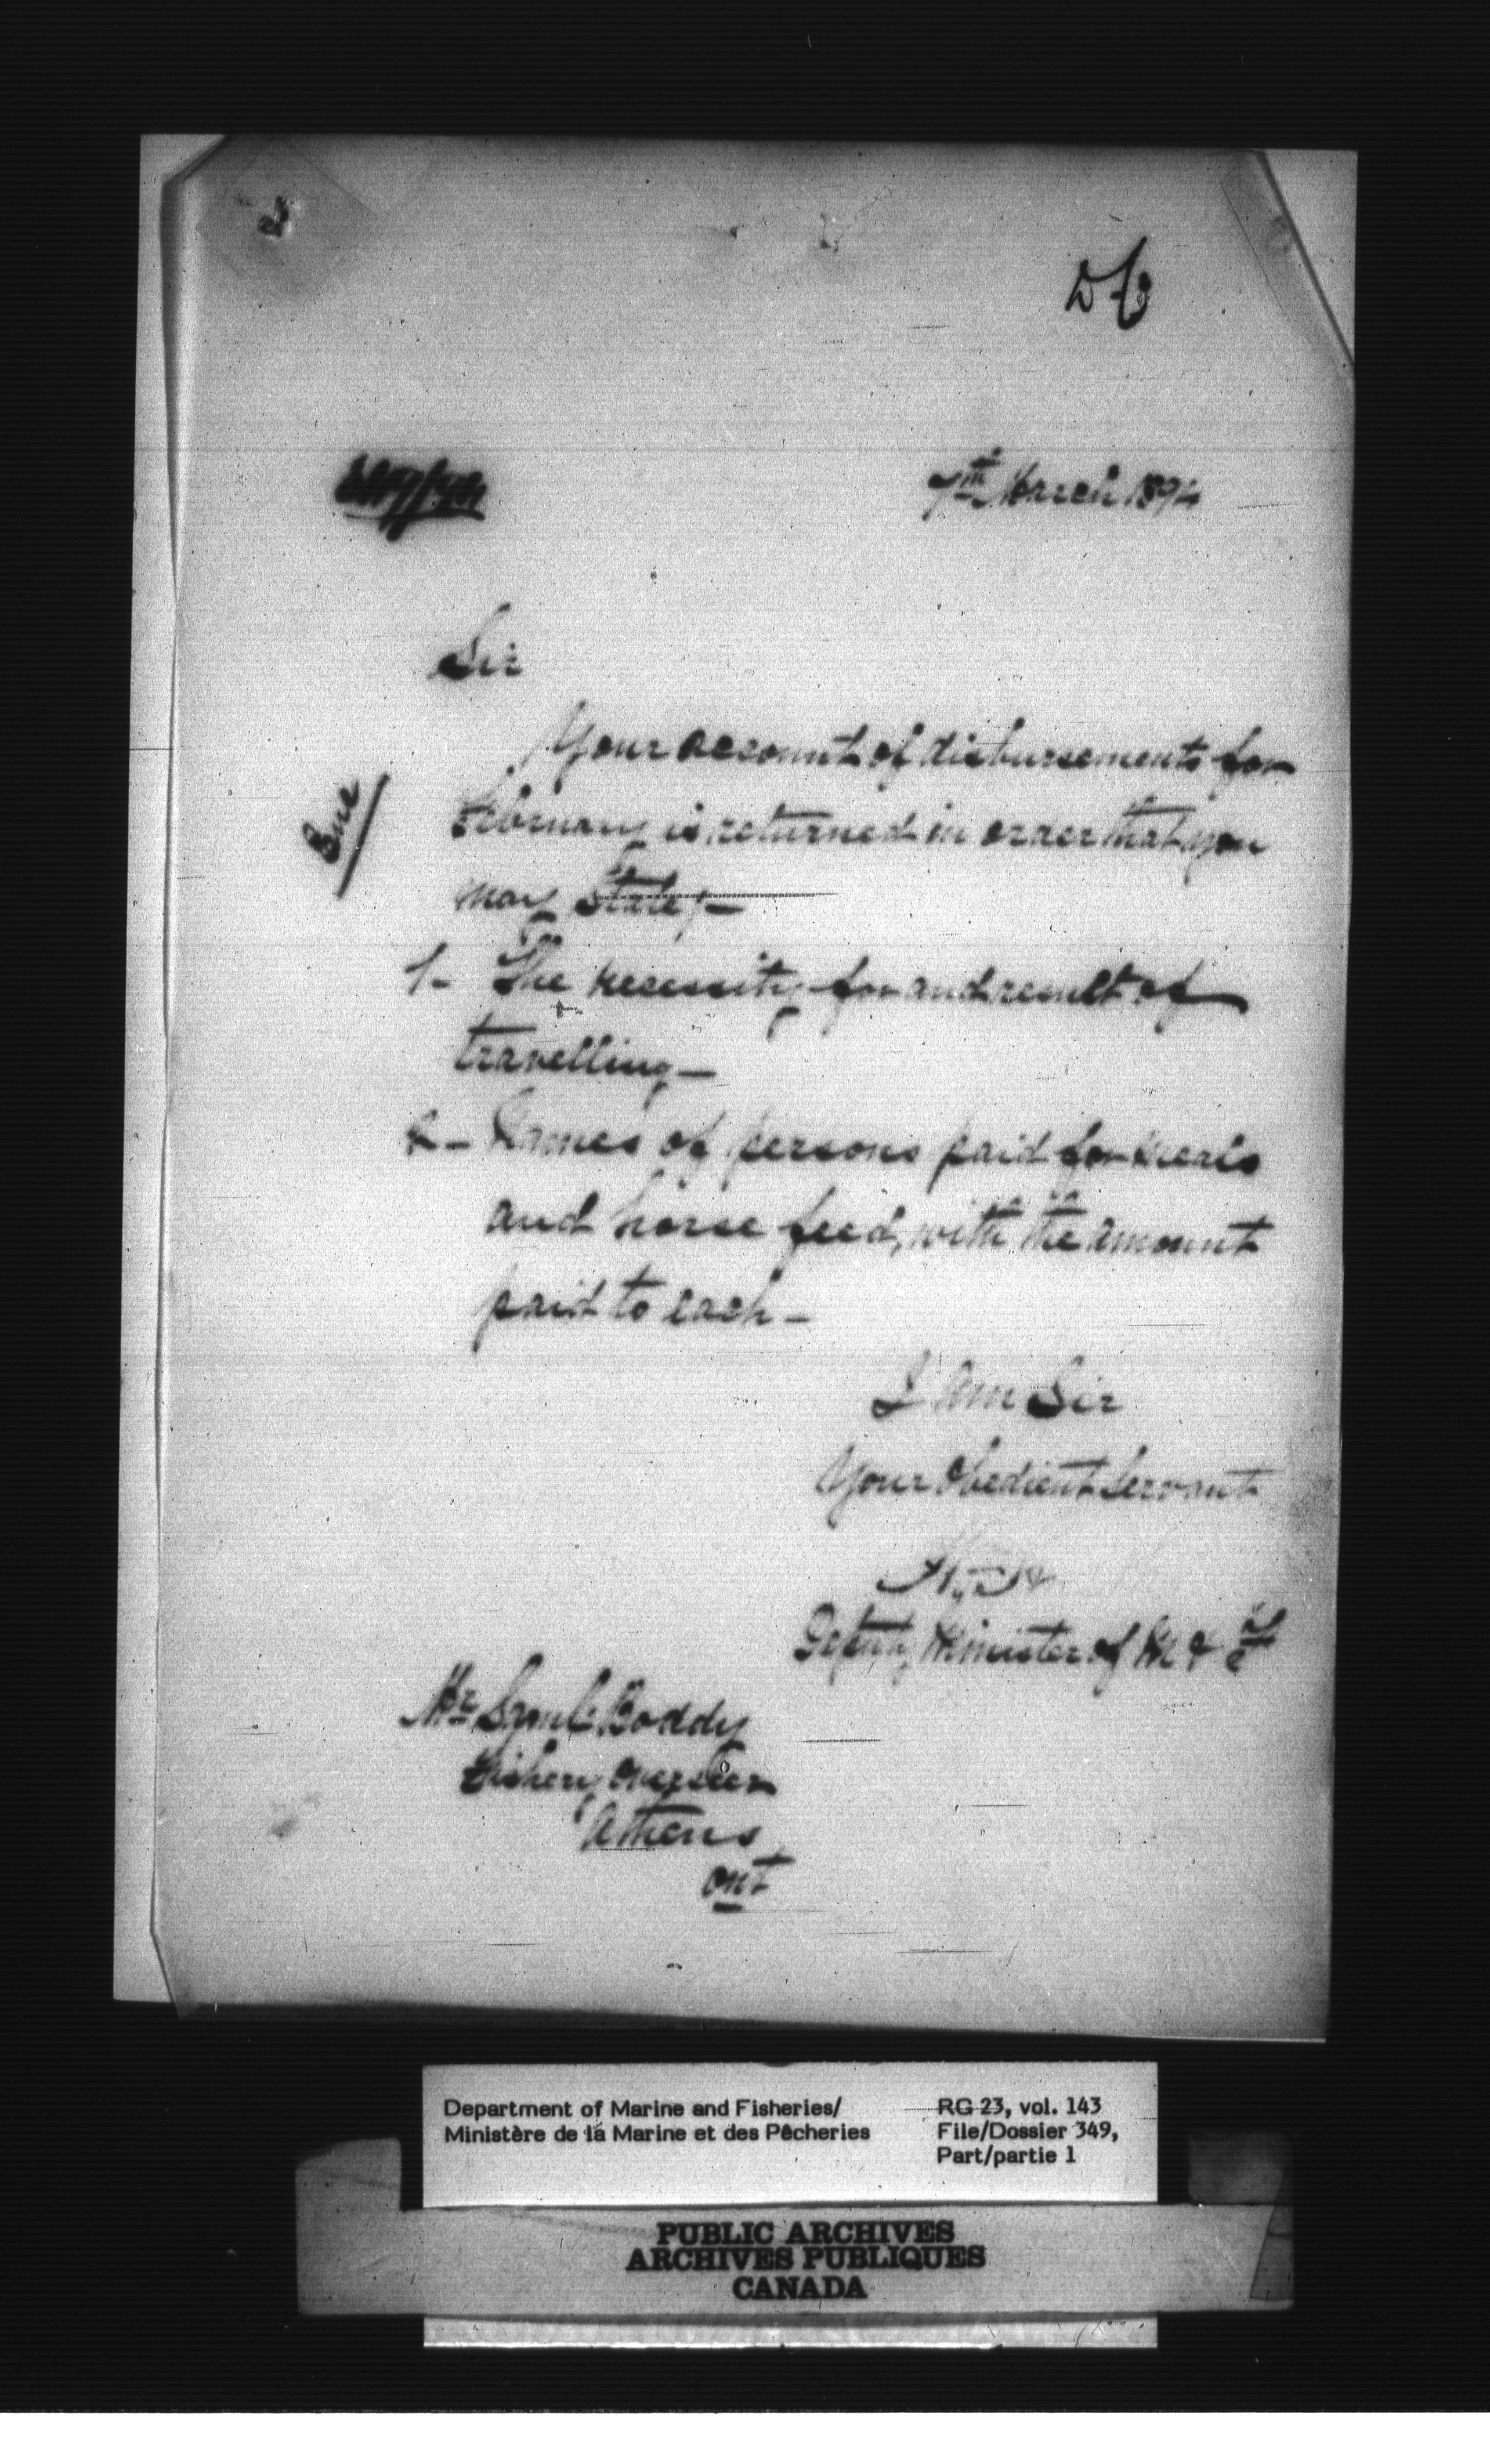 7th March 1894
Sir
Your account of disbursements for
February is returned in order that you
may state,—
1- The necessity for and result of
travelling—
2- Names of persons paid for meals
and horse feed, with the amount
paid to each-
I am Sir
Your Obedient Servant
Deputy Minister of M & F
Mr Boddy
Fishery Overseer
Athens
Ont
Department of Marine and Fisheries/
Ministère de la Marine et des Pêcheries
RG 23, vol. 143
File/Dossier 349,
Part/partie 1
PUBLIC ARCHIVES
ARCHIVES PUBLIQUES
CANADA